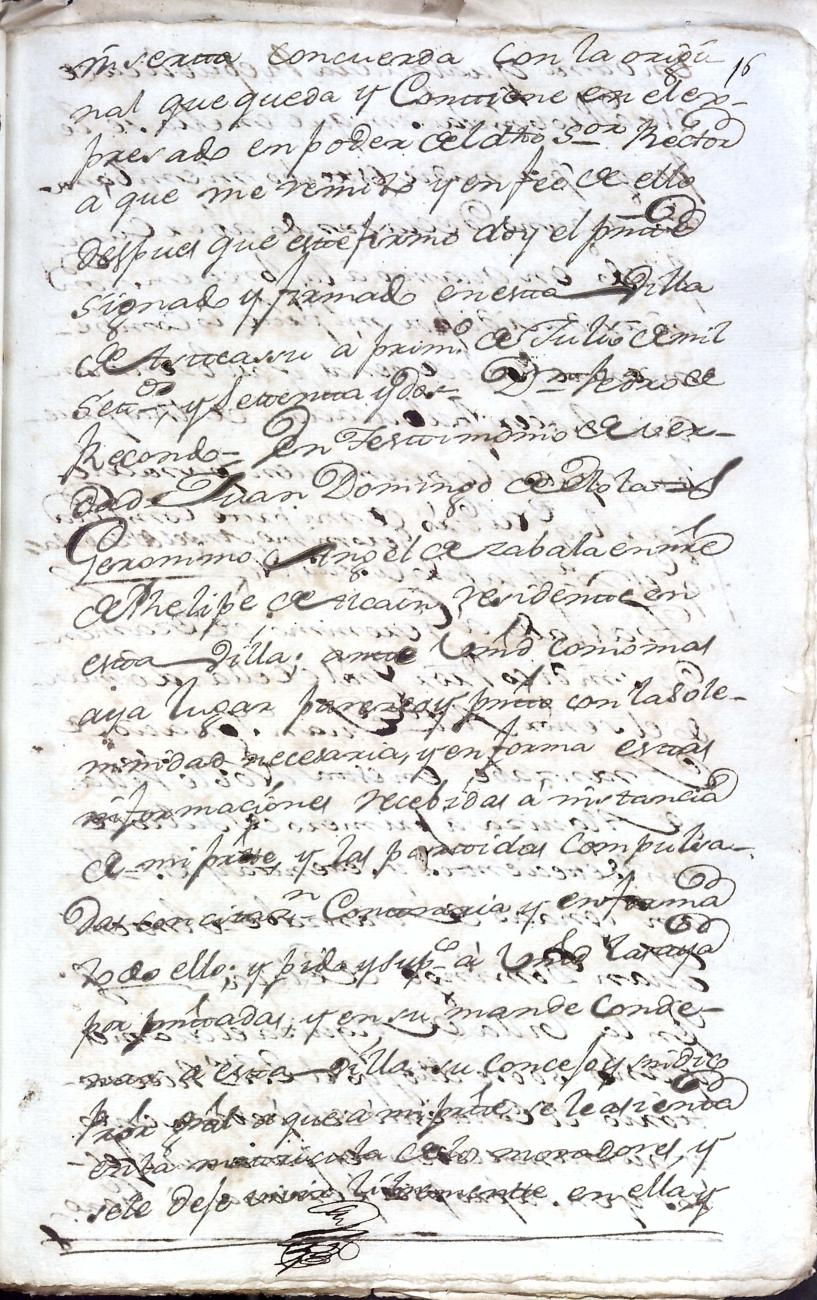 inserta concuerda con la origi 16
nal que queda y Contiene en el ex-
presado en poder del dho Sor Rector
a que me remito y en feé de ello
despues que este firmo doy el pnte
signado y firmado en esta Villa
de Asteassu à primo de Julio de mil
setos y Settenta y Dos- Dn Pedro de
Recondo- En Testimonio de ver-
dad- Juan Domingo de
Geronimo Angel de zabala en nre
de Phelipe de Alcain, residente en
esta Villa; ante Vmd como mas
aya lugar parezco y pnto con la Sole-
mnidad necesaria, y en forma estas
informaciones recebidas à instancia
de mi parte, y las partidas Compulsa-
das con citazn Contraria y en forma
todo ello; y pido y supco à Vmd las aya
por pntadas, y en su mande Conde-
nar à esta Villa su Concejo y sindico
Pror Gral a que à mi parte se le asienta
en la matricula de los moradores, y
sele deje vivir libremente en ella y